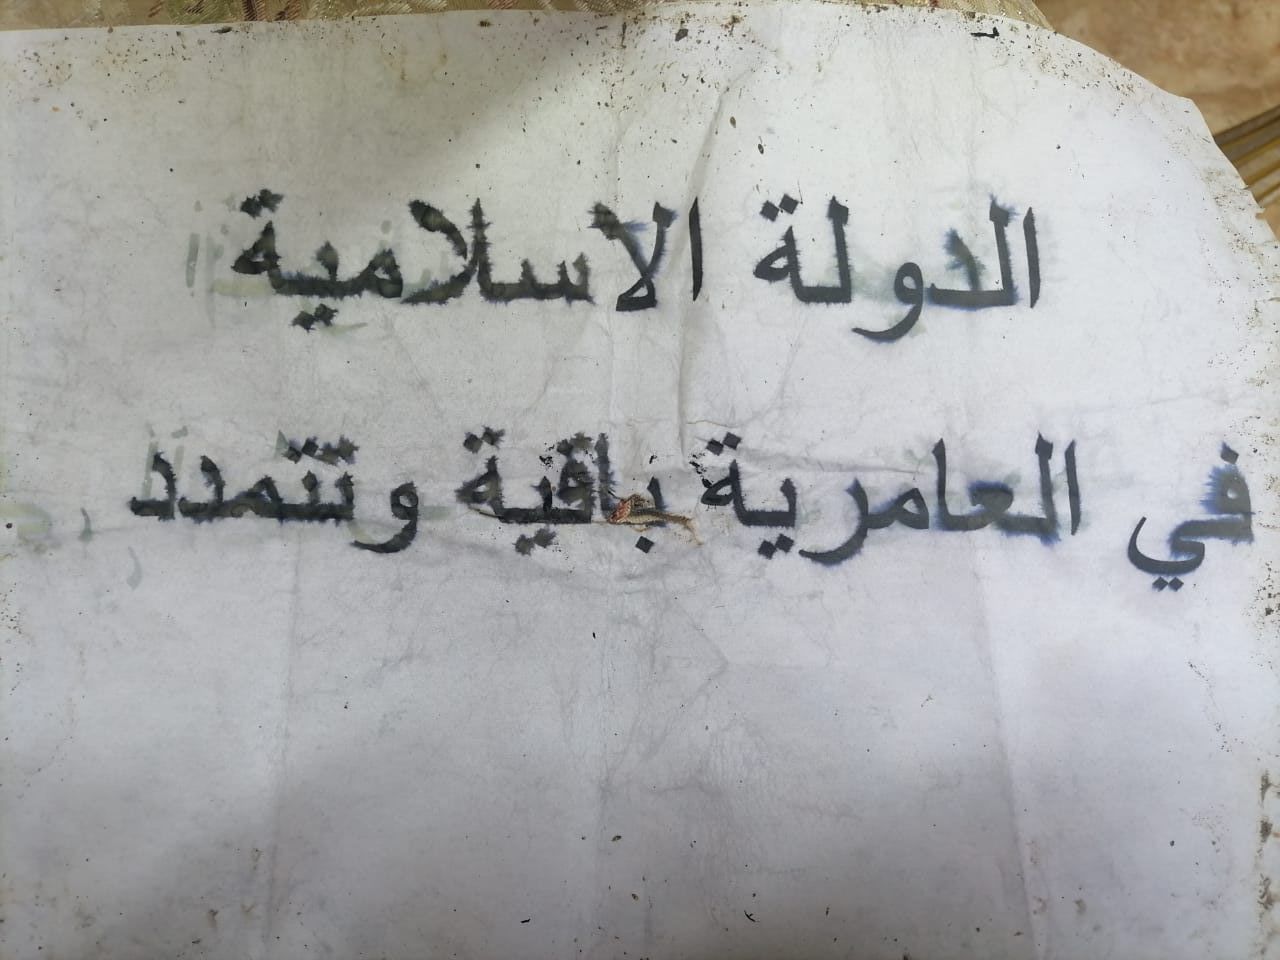 الدولة الاسلامية
في العامرية باقية وتتمدد